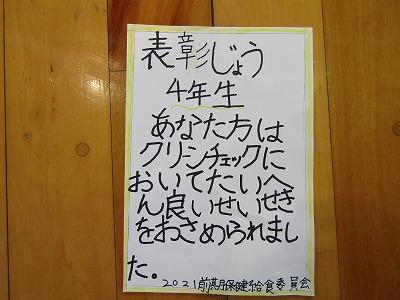 表彰じょう
4年生
あなた方は
クリーンチェックに
おいてたいへ
ん良いせいせき
をおさめられまし
た。
2021前期保健給食委員会